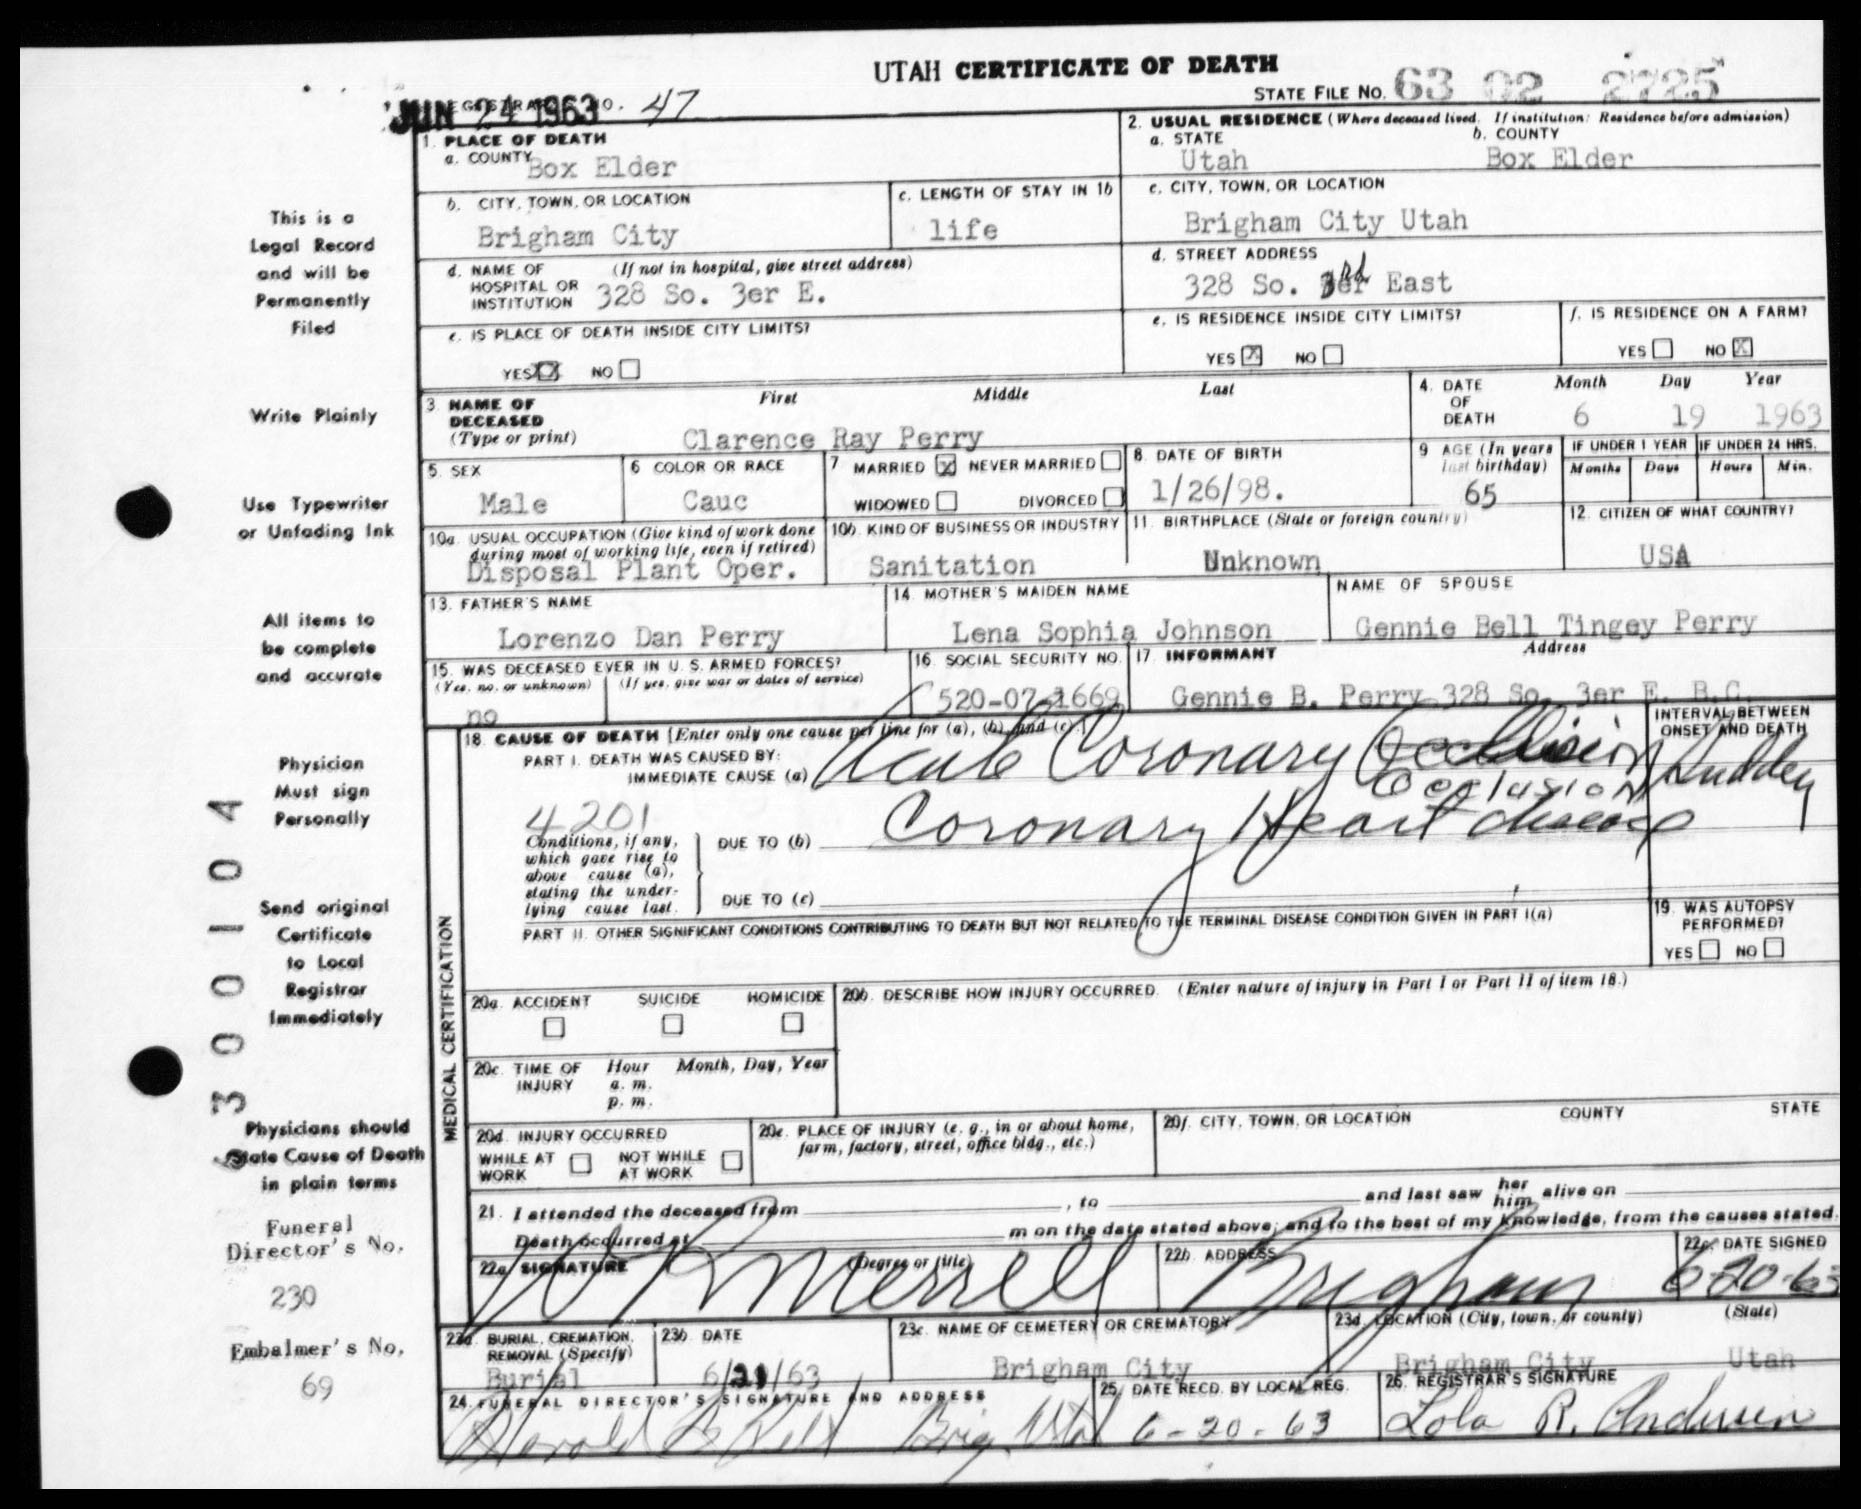 UTAH CERTIFICATE OF DEATH
STATE FILE NO. 63 02 2725
JUN 24 1963 REGISTRAR NO. 47
1. PLACE OF DEATH
a. COUNTY Box Elder
2. USUAL RESIDENCE (Where deceased lived. If institution: Residence before admission)
a. STATE Utah b. COUNTY Box Elder
b. CITY, TOWN, OR LOCATION Brigham City
c. LENGTH OF STAY IN 1b life
c. CITY, TOWN, OR LOCATION
Brigham City Utah
d. NAME OF HOSPITAL OR INSTITUTION (If not in hospital, give street address)
328 So. 3er E.
d. STREET ADDRESS
328 So. 3rd East
e. IS PLACE OF DEATH INSIDE CITY LIMITS?
YES X NO
e. IS RESIDENCE INSIDE CITY LIMITS?
YES X NO
f. IS RESIDENCE ON A FARM?
YES NO X
3. NAME OF DECEASED (Type or print) First Middle Last
Clarence Ray Perry
4. DATE OF DEATH Month Day Year
6 19 1963
5. SEX
Male
6 COLOR OR RACE
Cauc
7 MARRIED X NEVER MARRIED
WIDOWED DIVORCED
8. DATE OF BIRTH
1/26/98.
9 AGE (In years last birthday)
65
IF UNDER 1 YEAR
Months Days
IF UNDER 24 HRS.
Hours Min.
10a. USUAL OCCUPATION (Give kind of work done during most of working life, even if retired)
Disposal Plant Oper.
10b. KIND OF BUSINESS OR INDUSTRY
Sanitation
11. BIRTHPLACE (State or foreign country)
Unknown
12. CITIZEN OF WHAT COUNTRY?
USA
13. FATHER'S NAME
Lorenzo Dan Perry
14. MOTHER'S MAIDEN NAME
Lena Sophia Johnson
NAME OF SPOUSE
Gennie Bell Tingey Perry
15. WAS DECEASED EVER IN U. S. ARMED FORCES?
(Yes, no, or unknown) (If yes, give war or dates of service)
no
16. SOCIAL SECURITY NO.
520-07-1669
17. INFORMANT Address
Gennie B. Perry 328 So. 3er E. B.C.
MEDICAL CERTIFICATION
18. CAUSE OF DEATH [Enter only one cause per line for (a), (b), and (c).]
PART I. DEATH WAS CAUSED BY:
IMMEDIATE CAUSE (a) Acute Coronary Occlusion
Occlusion
INTERVAL BETWEEN ONSET AND DEATH
Sudden
4201
Conditions, if any, which gave rise to above cause (a), stating the underlying cause last.
DUE TO (b) Coronary Heart disease
DUE TO (c)
PART II. OTHER SIGNIFICANT CONDITIONS CONTRIBUTING TO DEATH BUT NOT RELATED TO THE TERMINAL DISEASE CONDITION GIVEN IN PART I(a)
19. WAS AUTOPSY PERFORMED?
YES NO
20a. ACCIDENT SUICIDE HOMICIDE
20b. DESCRIBE HOW INJURY OCCURRED. (Enter nature of injury in Part I or Part II of item 18.)
20c. TIME OF INJURY Hour Month, Day, Year
a. m.
p. m.
20d. INJURY OCCURRED
WHILE AT WORK NOT WHILE AT WORK
20e. PLACE OF INJURY (e. g., in or about home, farm, factory, street, office bldg., etc.)
20f. CITY, TOWN, OR LOCATION COUNTY STATE
21. I attended the deceased from , to and last saw her him alive on
Death occurred at m on the date stated above; and to the best of my knowledge, from the causes stated.
22a. SIGNATURE (Degree or title)
W R Merrell
22b. ADDRESS
Brigham
22c. DATE SIGNED
6-20-63
23a. BURIAL, CREMATION, REMOVAL (Specify)
Burial
23b. DATE
6/21/63
23c. NAME OF CEMETERY OR CREMATORY
Brigham City
23d. LOCATION (City, town, or county) (State)
Brigham City Utah
24. FUNERAL DIRECTOR'S SIGNATURE AND ADDRESS
Harold B Felt Brig. Utah
25. DATE RECD. BY LOCAL REG.
6-20-63
26. REGISTRAR'S SIGNATURE
Lola R. Andersen
This is a
Legal Record
and will be
Permanently
Filed
Write Plainly
Use Typewriter
or Unfading Ink
All items to
be complete
and accurate
Physician
Must sign
Personally
Send original
Certificate
to Local
Registrar
Immediately
Physicians should
State Cause of Death
in plain terms
Funeral
Director's No.
230
Embalmer's No.
69